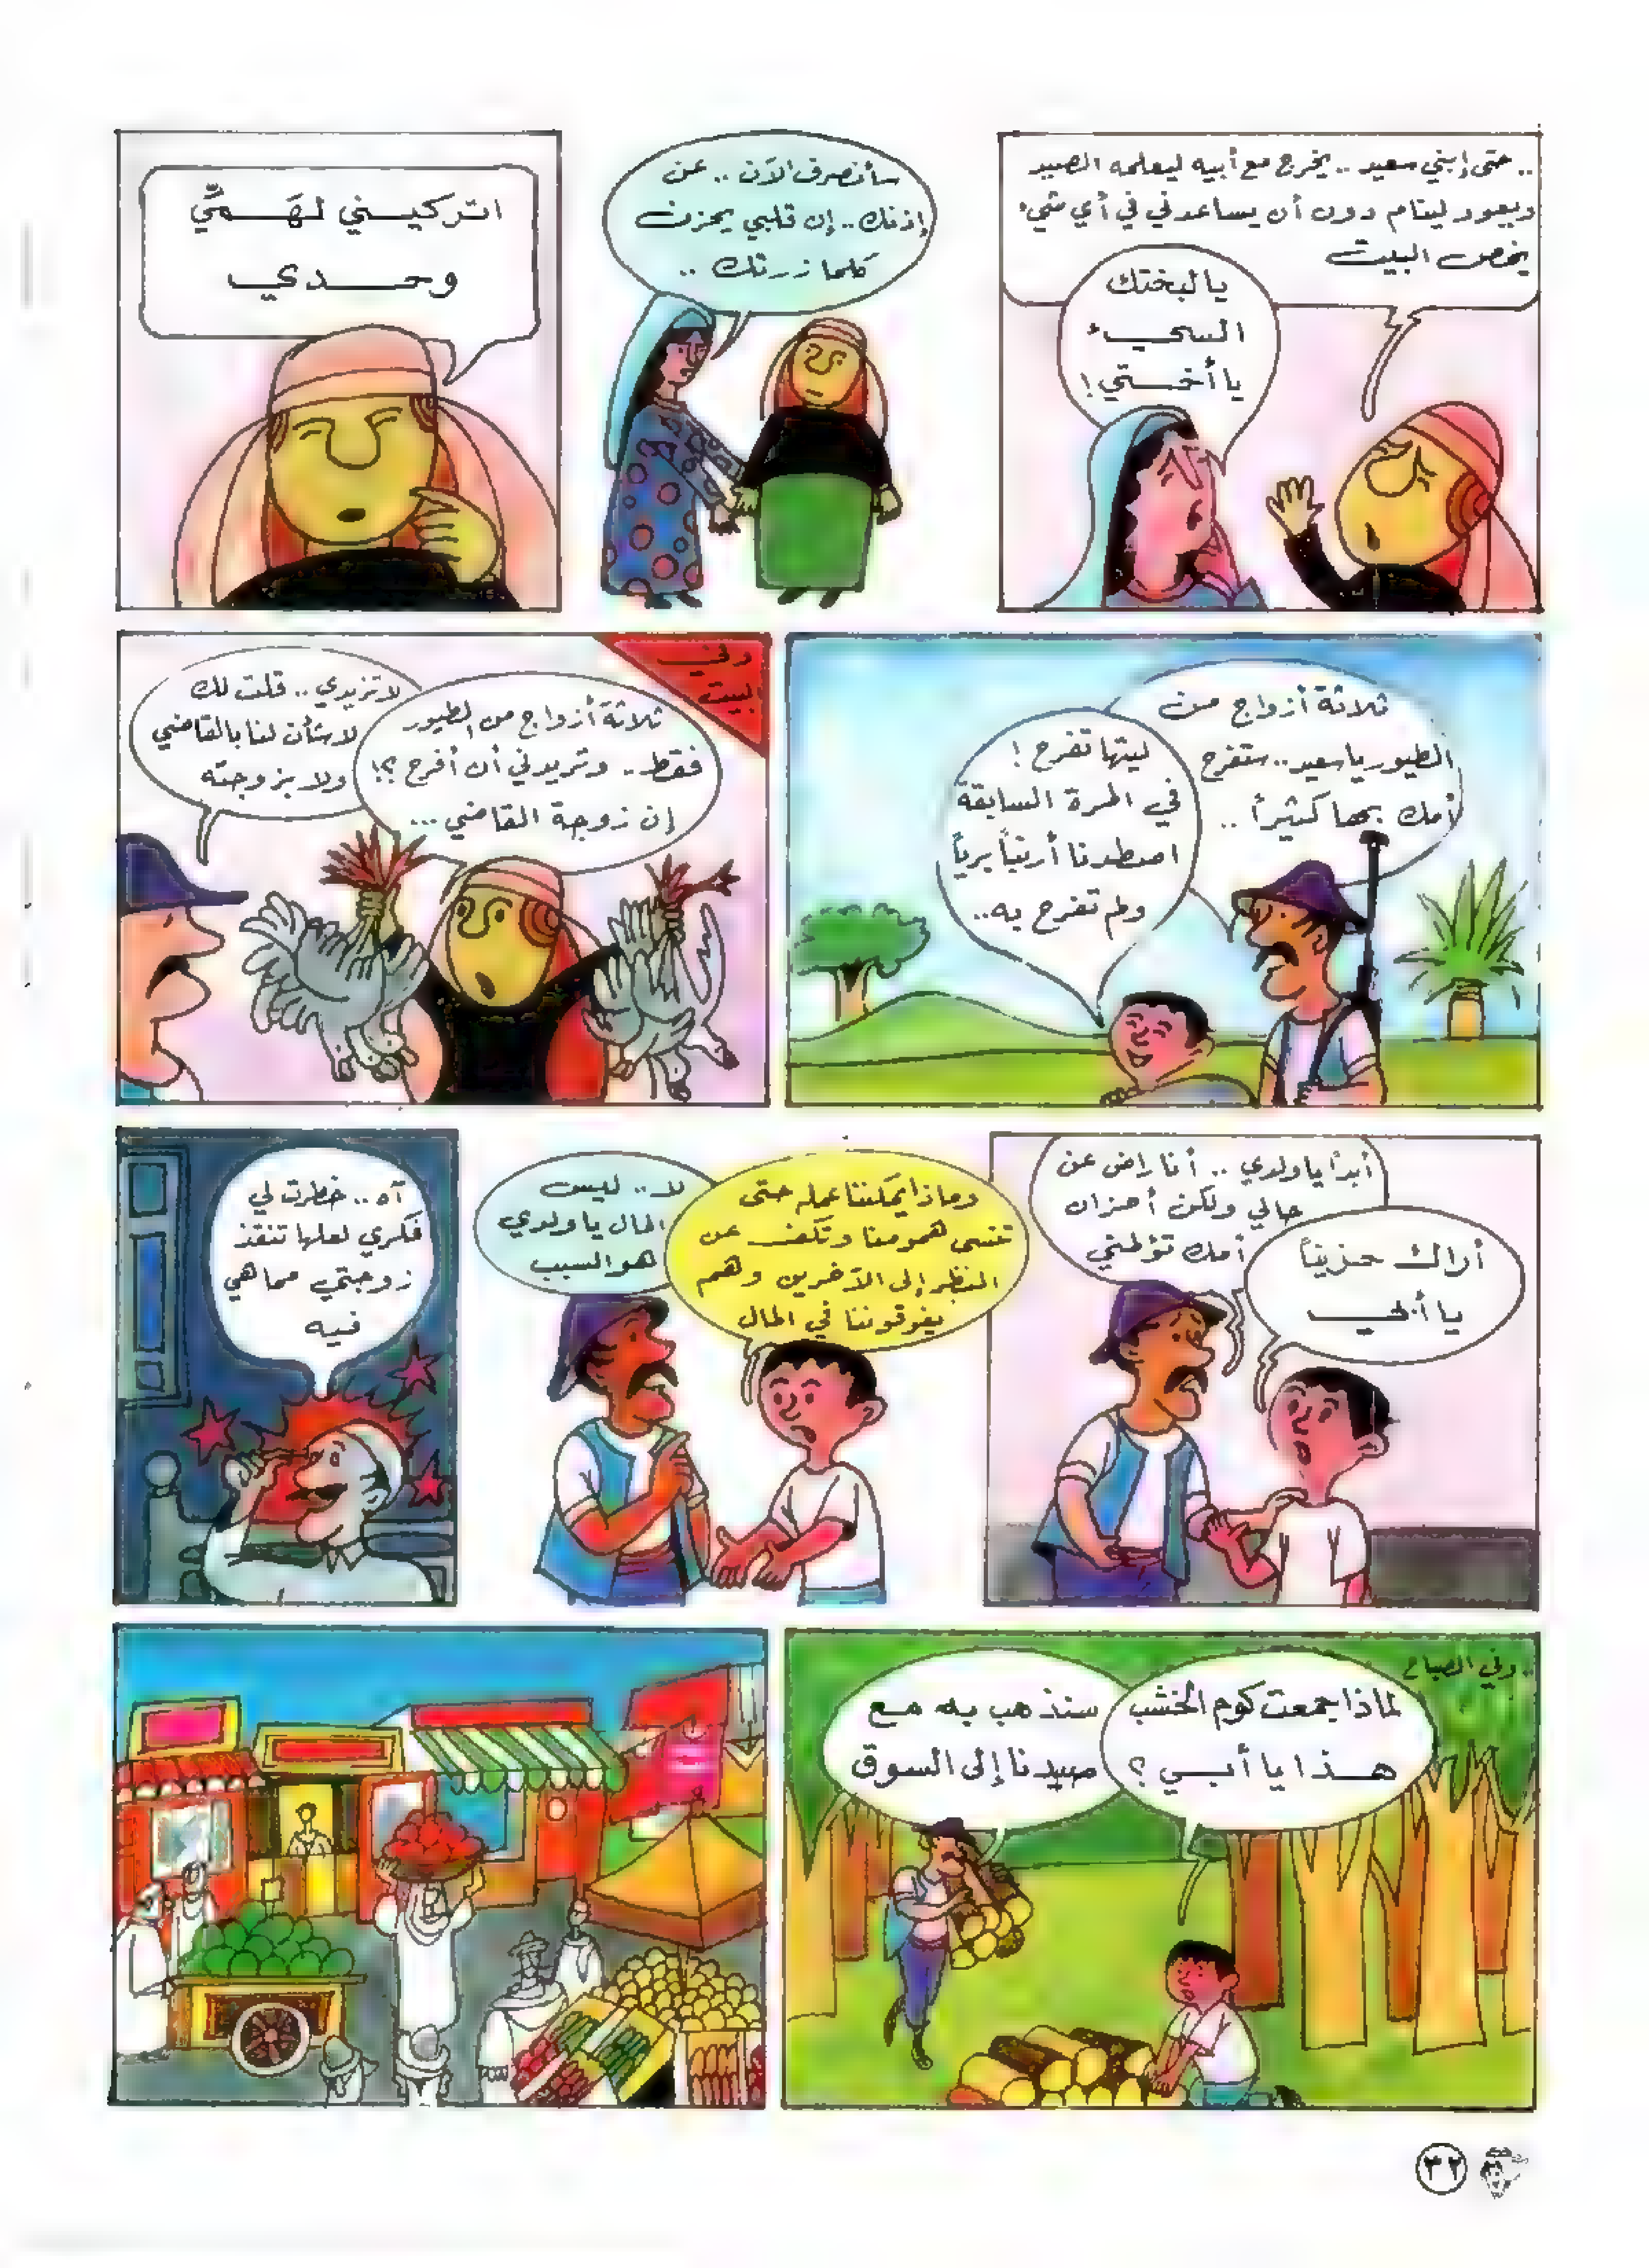 .. حتى إبني سعيد .. يخرج مع أبيه ليعلمه الصيد
ويعود لينام دون أن يساعدني في أي شيء
يخص البيت
يا لبختك
السيء
يا أختي !
سأنصرف الآن .. عن
إذنك .. إن قلبي يحزن
كلما زرتك ..
اتركيني لهَمّي
وحدي
ثلاثة أزواج من
الطيور يا سعيد .. ستفرح
أمك بها كثيراً ..
ليتها تفرح !
في المرة السابقة
اصطدنا أرنباً برياً
ولم تفرح به ..
وفي
البيت
ثلاثة أزواج من الطيور
فقط .. وتريدني أن أفرح ؟!
إن زوجة القاضي ...
لا تزيدي .. قلت لك
لا شأن لنا بالقاضي
ولا بزوجته
أراك حزيناً
يا أبي
أبداً يا ولدي .. أنا راض عن
حالي ولكن أحزان
أمك تؤلمني
وماذا يمكننا عمله حتى
تنسى همومنا وتكف عن
النظر إلى الآخرين وهم
يفوقوننا في المال
لا .. ليس
المال يا ولدي
هو السبب
آه .. خطرت لي
فكرة لعلها تنقذ
زوجتي مما هي
فيه
.. وفي الصباح
لماذا جمعت كوم الخشب
هذا يا أبي ؟
سنذهب به مع
صيدنا إلى السوق
٣٢